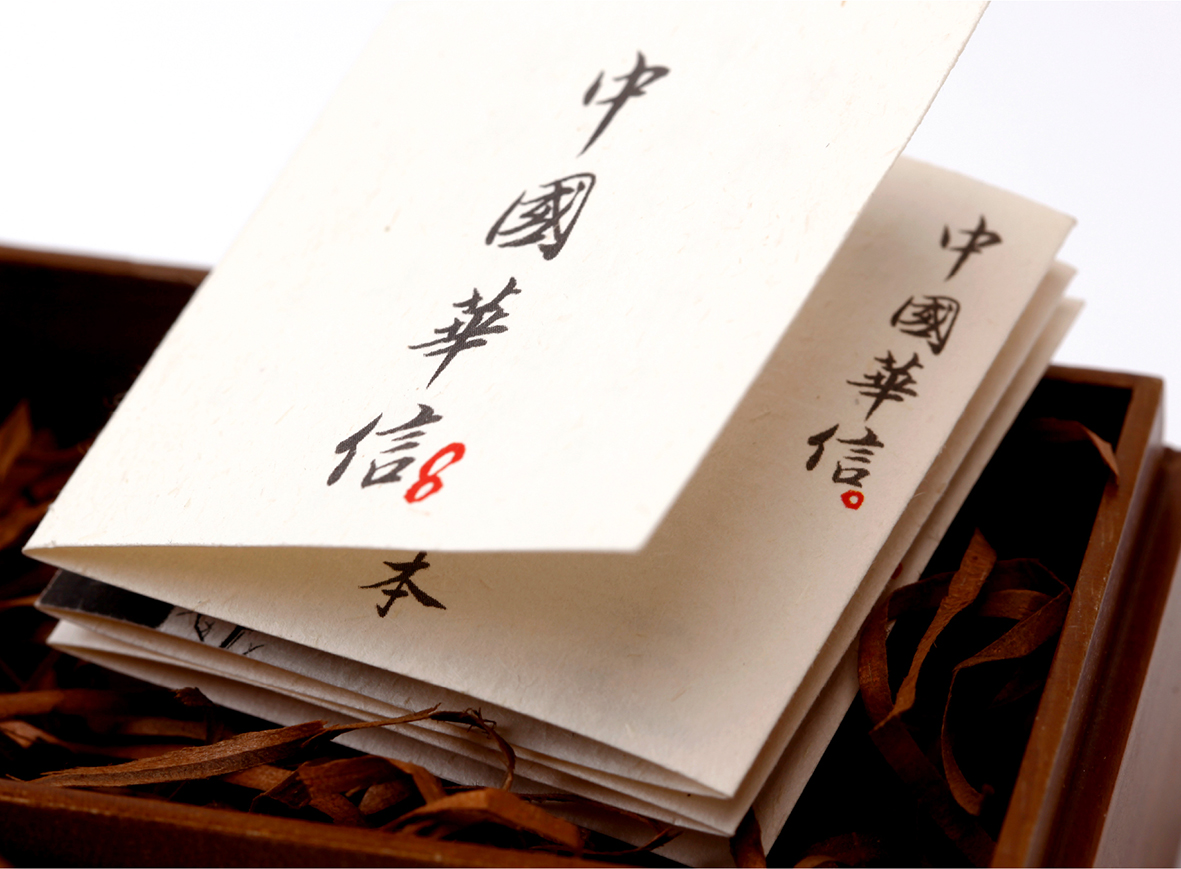 中國華信8
本
中國華信。